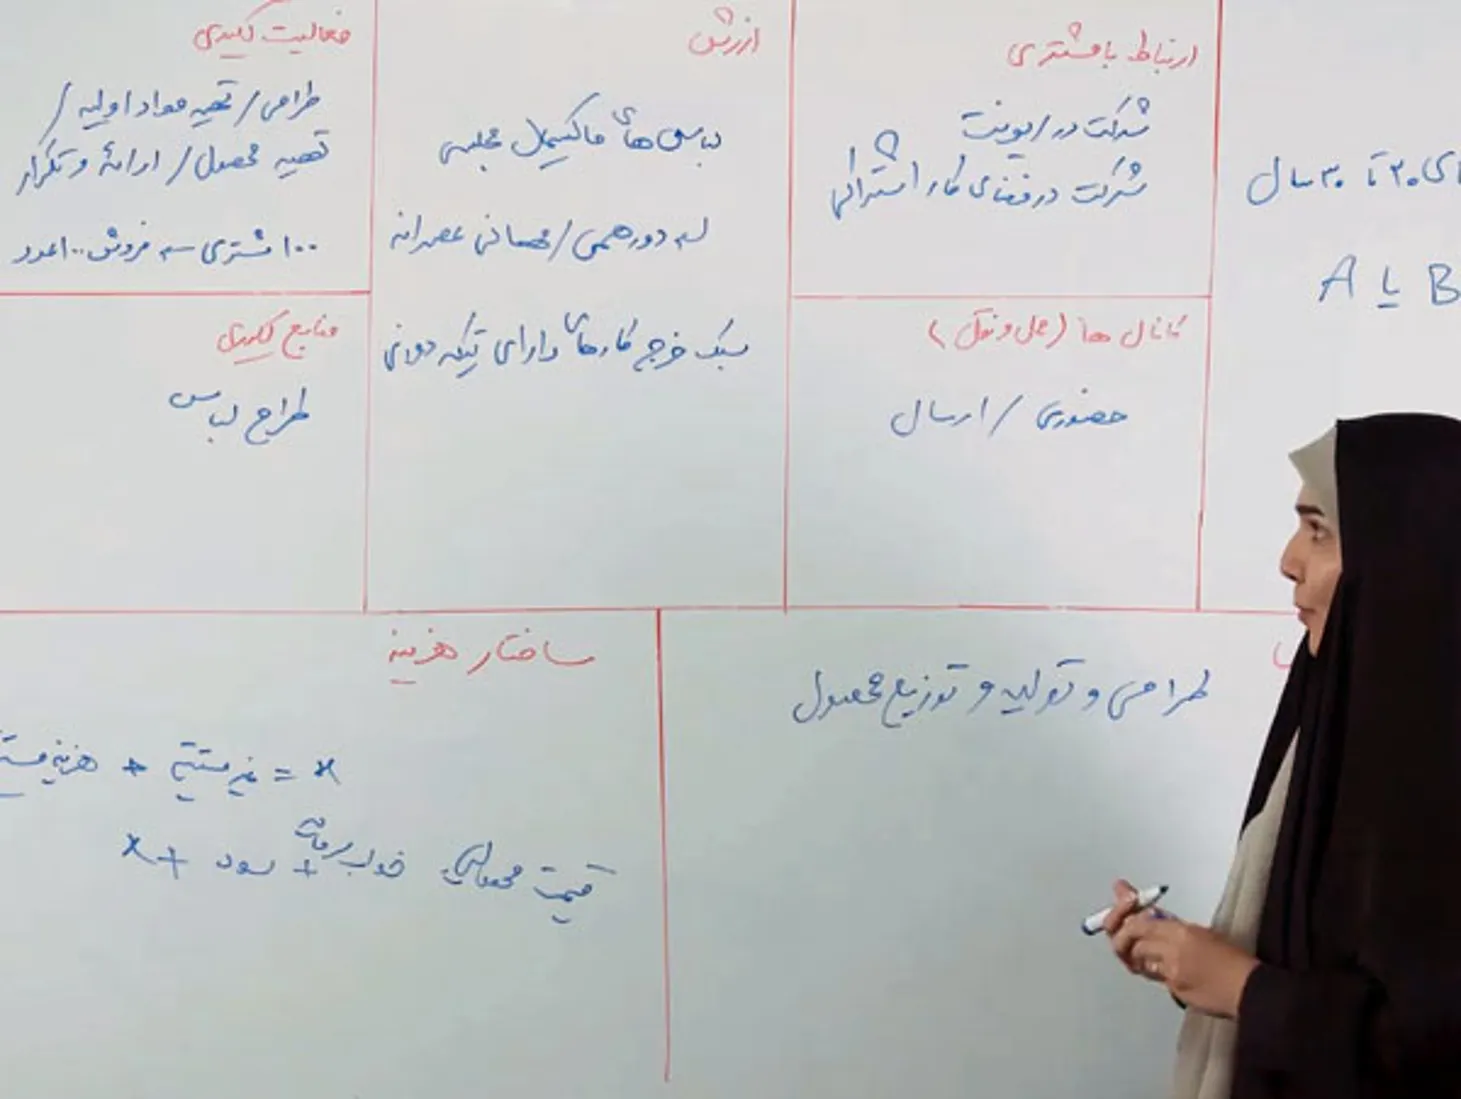 فعالیت کلیدی
طراحی / تهیه مواد اولیه /
تهیه محصول / ارائه و تکرار
۱۰۰ مشتری ← فروش ۱۰۰ عدد
منابع کلیدی
طراح لباس
ارزش
لباس های ماکسیمال مجلسی
دورهمی / مهمانی عصرانه
سبک خرج کارهای دارای تیکه دوزی
ارتباط با مشتری
شرکت در ایونت
شرکت در فضای کار اشتراکی
کانال ها (حمل و نقل)
حضوری / ارسال
ی ۲۰ تا ۳۰ سال
A یا B
ساختار هزینه
هزینه + غیر مستقیم = x
قیمت محصول خواب سرمایه + سود + x
طراحی و تولید و توزیع محصول